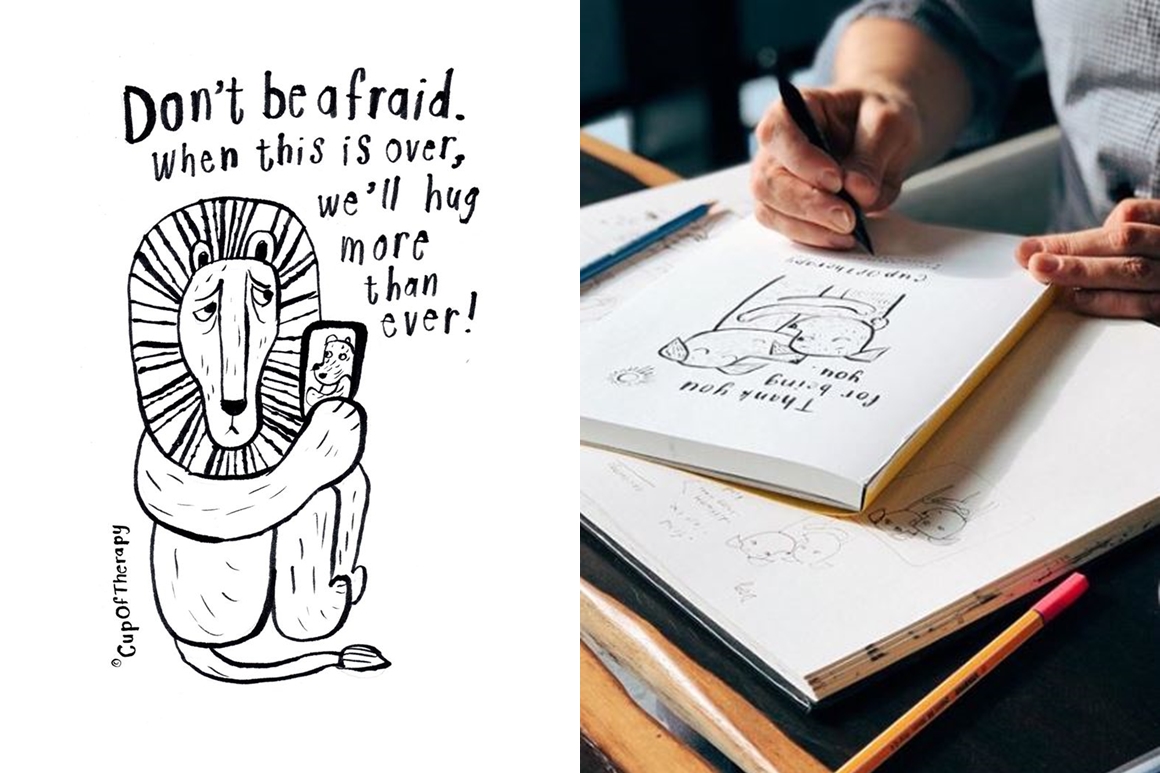 Don't be afraid.
When this is over,
we'll hug
more
than
ever!
©CupOfTherapy
Thank you
for being
you.
CupOfTherapy